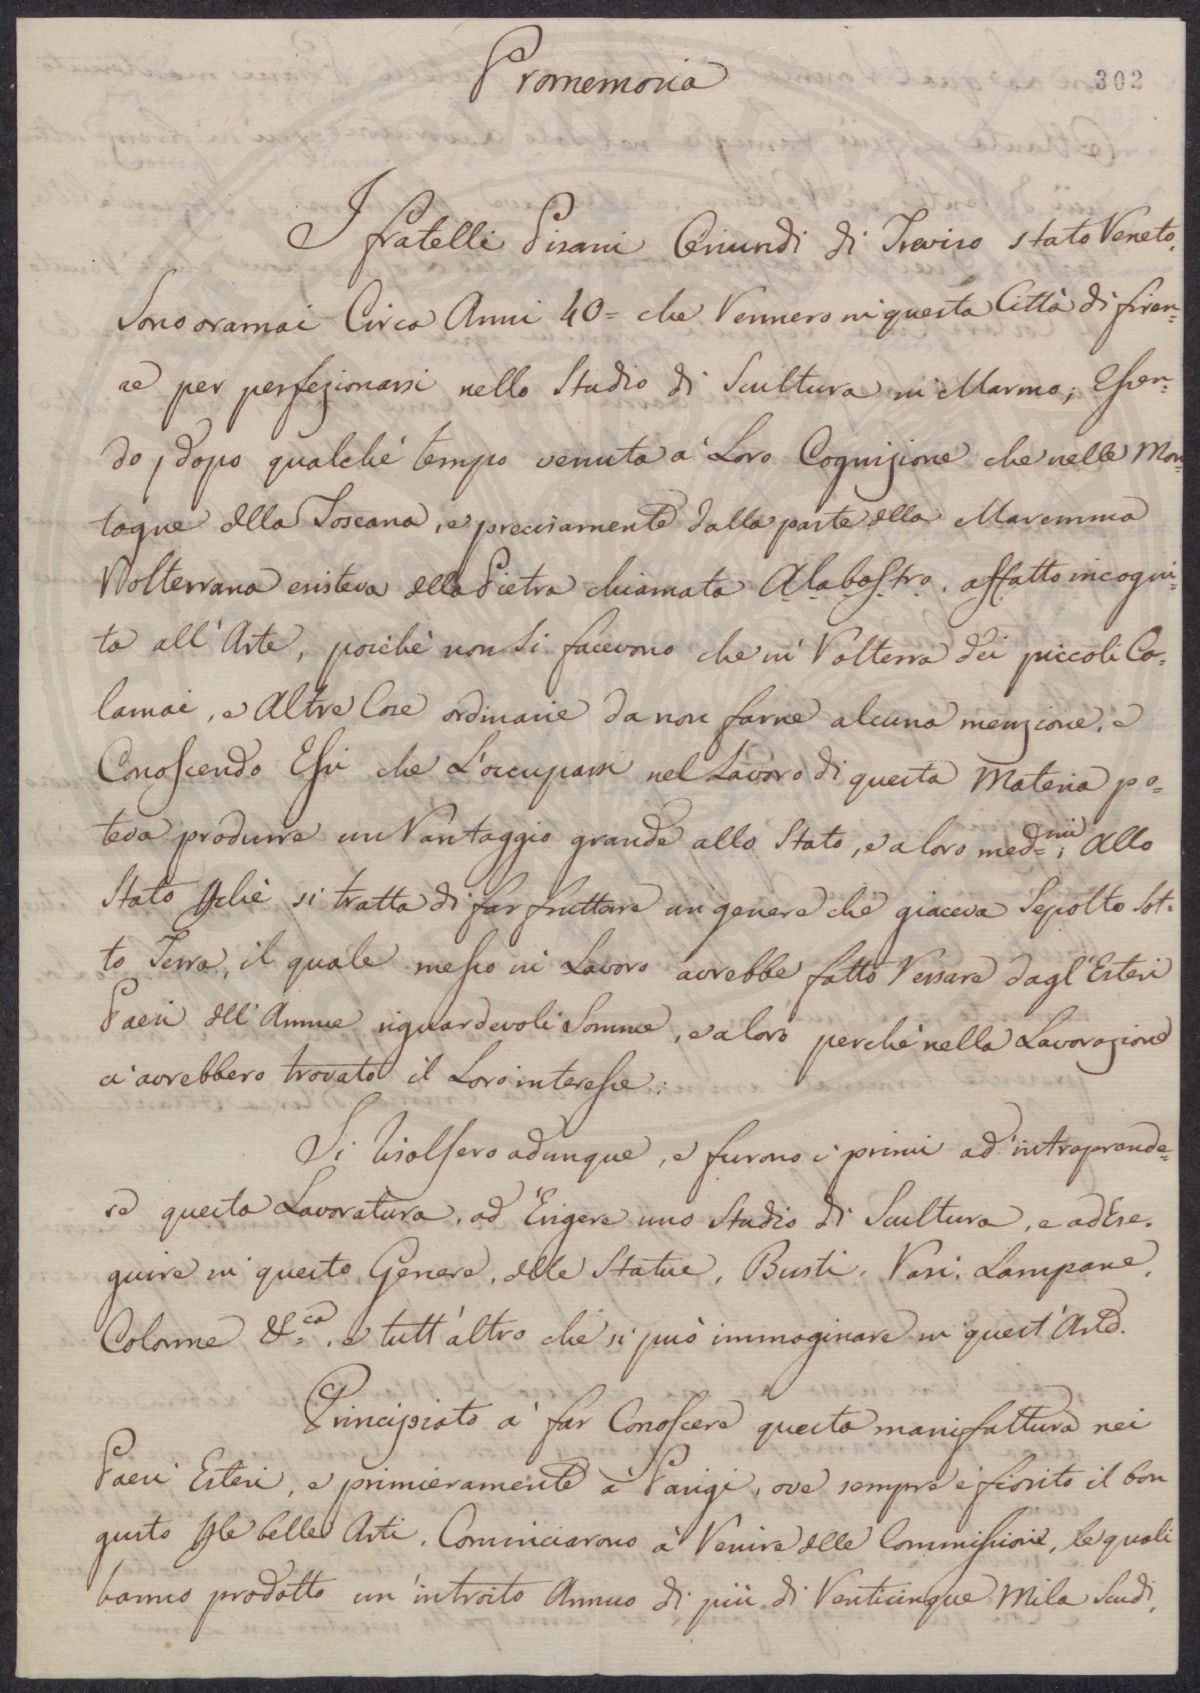 Promemoria
302
I fratelli Pisani Oriundi di Treviso stato Veneto.
Sono oramai Circa Anni 40= che Vennero in questa Città di firen=
ze per perfezionarsi nello Studio di Scultura in Marmo; Essen=
do, dopo qualchè tempo venuta a' Loro Cognizione che nelle Mon=
tagne dlla Toscana, e precisamente dalla parte dlla Maremma
Volterrana esisteva dlla Pietra chiamata Alabastro. affatto incogni=
ta all'Arte, poichè non Si facevono che in Volterra dei piccoli Ca=
lamai, e Altre Cose ordinarie da non farne alcuna menzione. e
Conoscendo Essi che L'occuparsi nel Lavoro di questa Materia po=
teva produrre un Vantaggio grande allo Stato, e a loro med=mi; Allo
Stato pchè si tratta di far fruttare un genere che giaceva Sepolto Sot=
to Terra, il quale messo in Lavoro avrebbe fatto Versare dagl'Esteri
Paesi dll'Annue riguardevoli Somme, e a loro perchè nella Lavorazione
ci avrebbero trovato il Loro interesse:
Si risolsero adunque, e furono i primi ad intraprende=
re questa Lavoratura, ad Erigere uno Studio di Scultura, e ad Ese=
guire in questo Genere, dlle Statue, Busti, Vasi, Lampane,
Colonne &=ca, e tutt'altro che si può immaginare in quest'Arte.
Principiato a' far Conoscere questa manifattura nei
Paesi Esteri, e primieramente a' Parigi, ove sempre è fiorito il bon
gusto plle belle Arti, Cominciarono a' Venire dlle Commissioni, le quali
hanno prodotto un'introito Annuo di più di Venticinque Mila Scudi,